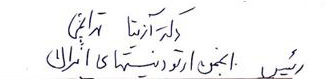 دکتر آزیتا تهرانچی
رئیس انجمن ارتودنتیستهای ایران